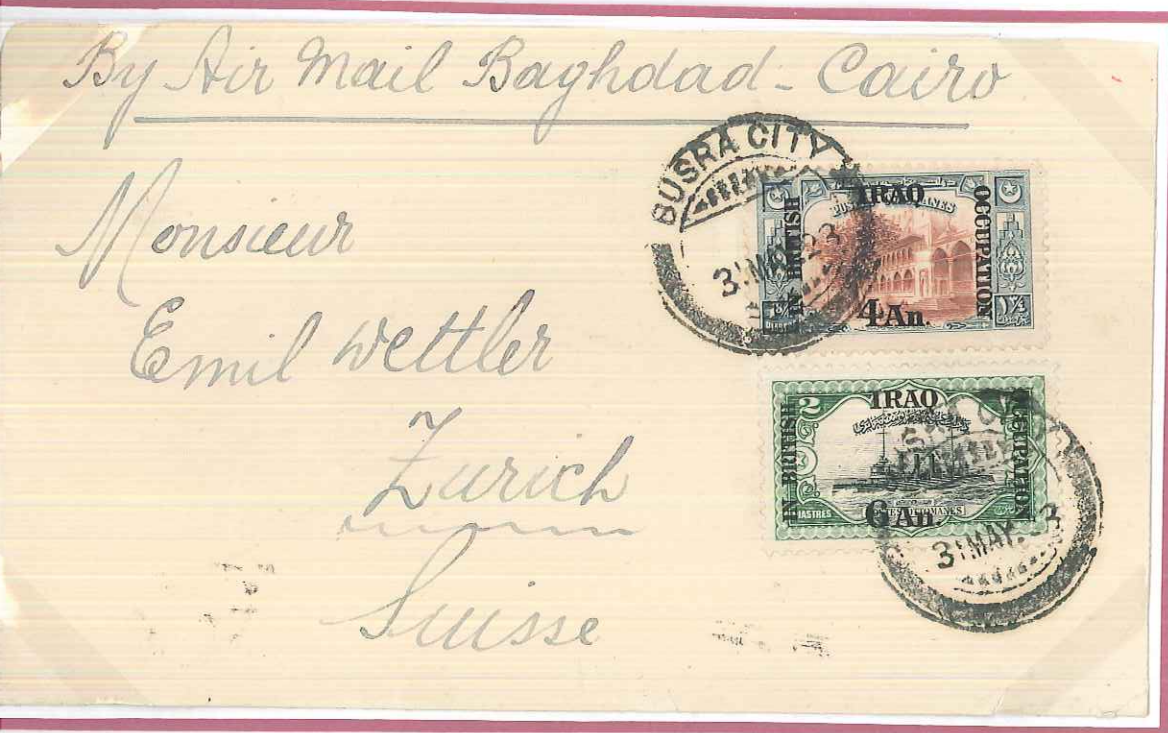 By Air Mail Baghdad - Cairo
Monsieur
Emil Wettler
Zurich
Suisse
BUSRA CITY
31 MAY. 23
IRAQ
IN BRITISH
OCCUPATION
4 An.
2
IRAQ
IN BRITISH
OCCUPATION
PIASTRES
6 An.
31 MAY. 23